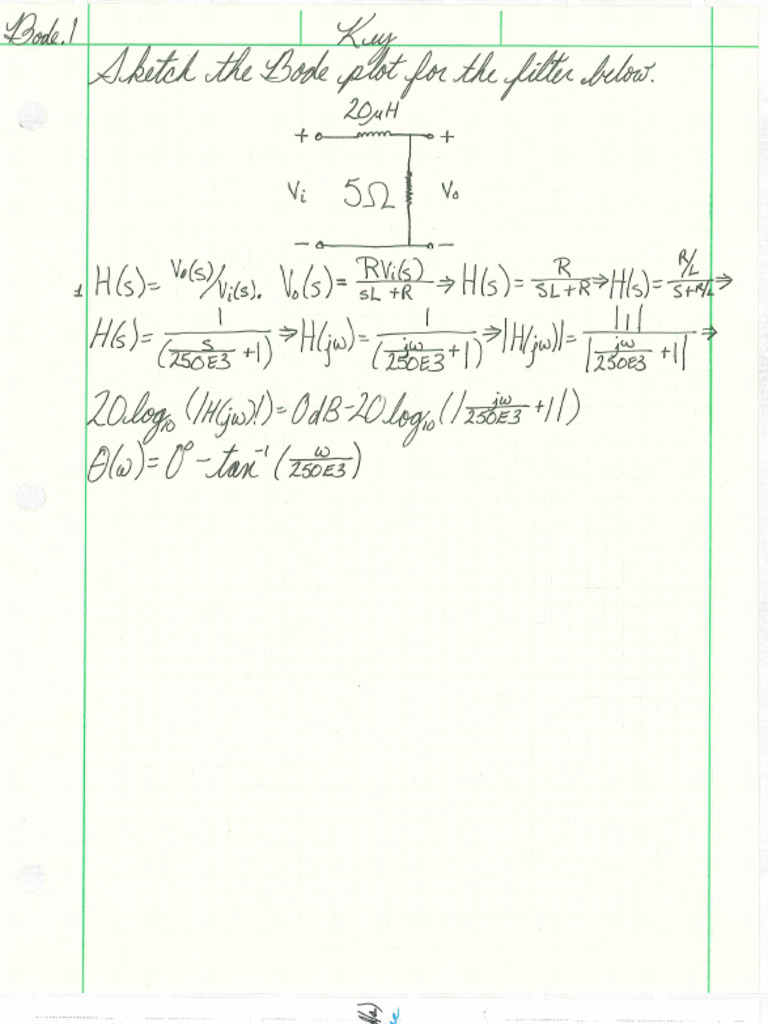 Bode.1
Key
Sketch the Bode plot for the filter below.
20μH
+ +
Vi 5Ω Vo
- -
1 H(s)= Vo(s)/Vi(s). Vo(s)= RVi(s)/(sL+R) ⇒ H(s)= R/(SL+R) ⇒ H(s)= (R/L)/(S+R/L) ⇒
H(s)= 1/(s/250E3 +1) ⇒ H(jω)= 1/(jω/250E3 +1) ⇒ |H(jω)|= |1|/|jω/250E3 +1| ⇒
20log₁₀(|H(jω)|)=0dB-20log₁₀(|jω/250E3 +1|)
θ(ω)=0°-tan⁻¹(ω/250E3)